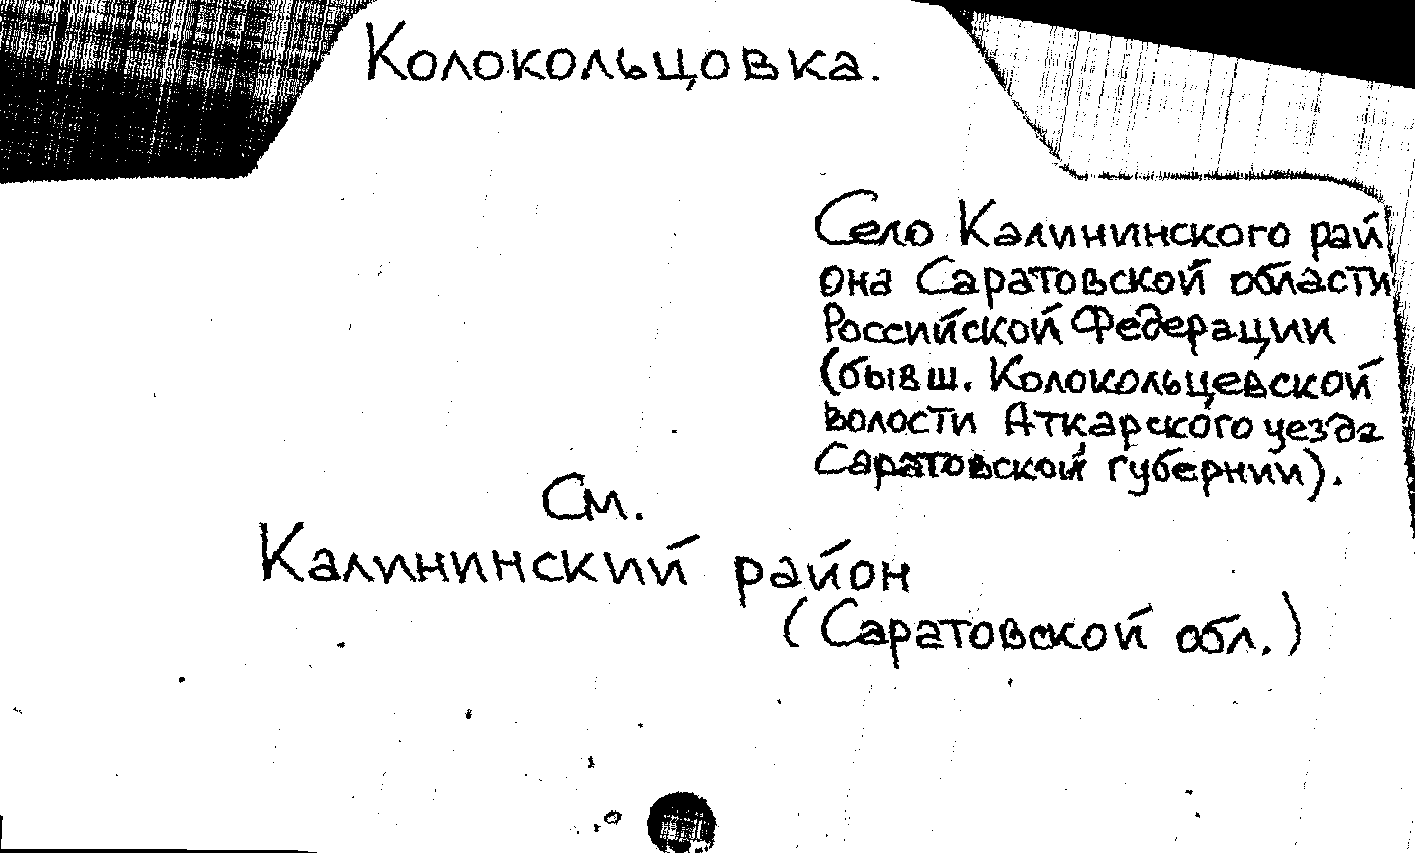 Колокольцовка.
Село Калининского рай
она Саратовской области
Российской Федерации
(бывш. Колокольцевской
волости Аткарского уезда
Саратовской губернии).
См.
Калининский район
(Саратовской обл.)